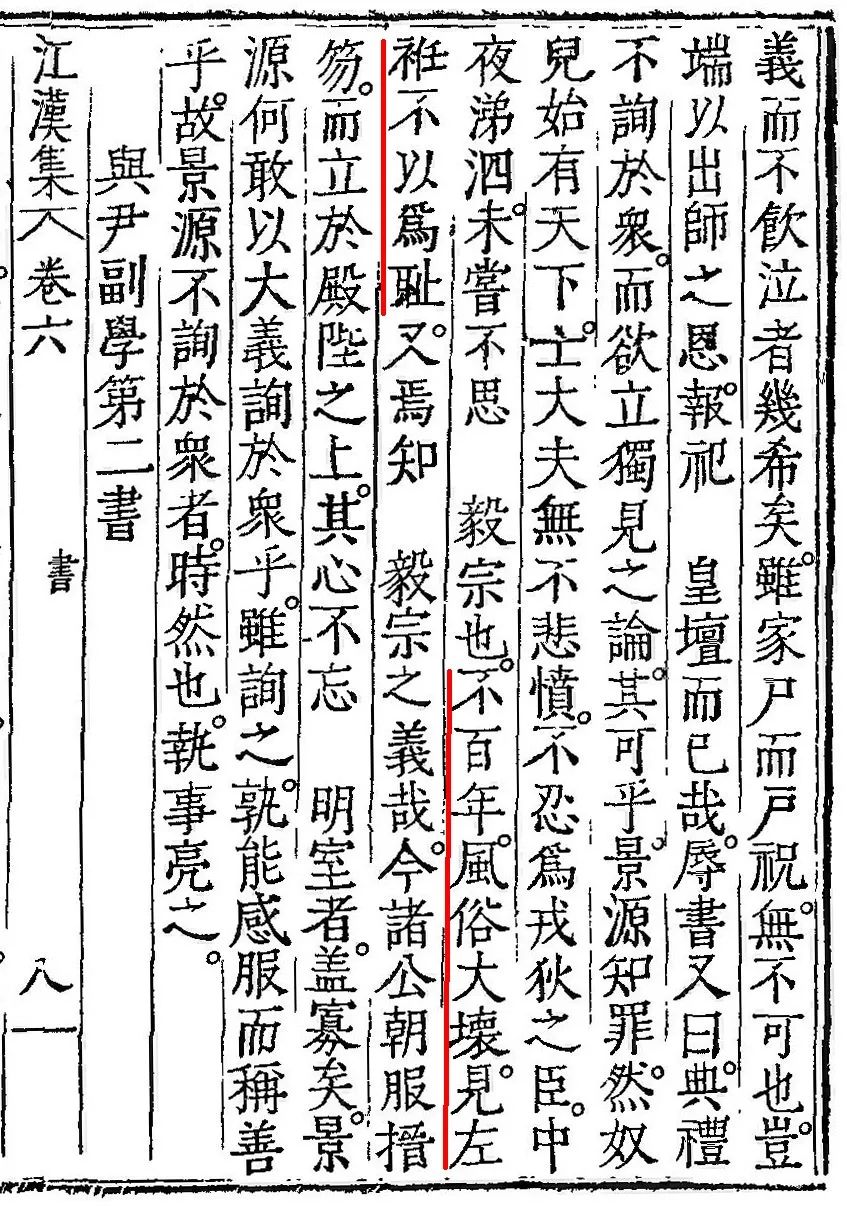 義而不飮泣者幾希矣。雖家尸而戶祝。無不可也。豈
端以出師之恩。報祀　皇壇而已哉。辱書又曰。典禮
不詢於衆。而欲立獨見之論。其可乎。景源知罪。然奴
兒始有天下。士大夫無不悲憤。不忍爲戎狄之臣。中
夜涕泗。未嘗不思　毅宗也。不百年。風俗大壞。見左
袵不以爲耻。又焉知　毅宗之義哉。今諸公朝服搢
笏。而立於殿陛之上。其心不忘　明室者。盖寡矣。景
源何敢以大義詢於衆乎。雖詢之。孰能感服而稱善
乎。故景源不詢於衆者。時然也。執事亮之。
與尹副學第二書
江漢集　卷六　書　八